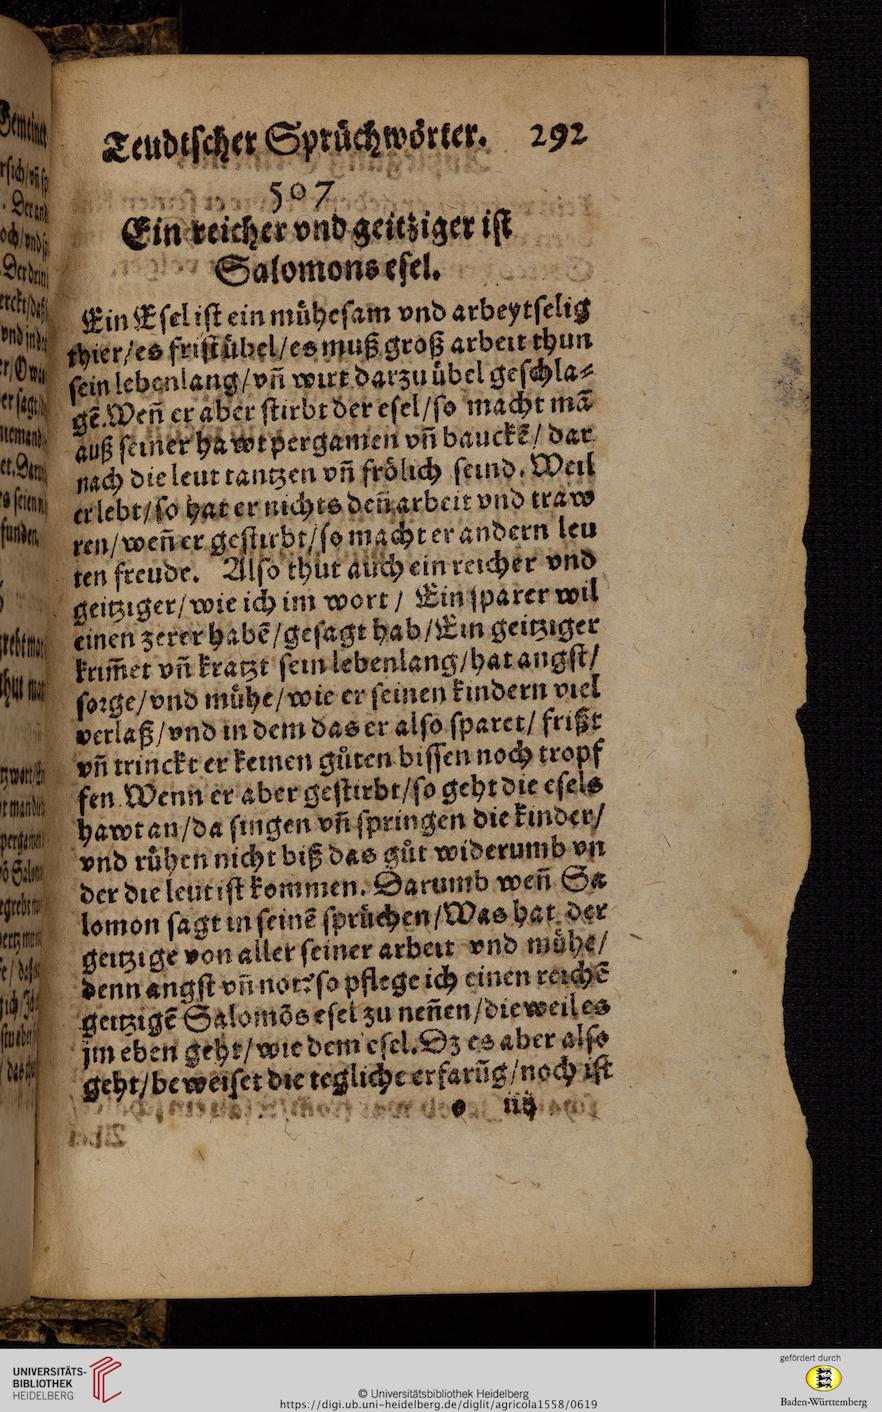 Teudtscher Sprüchwörter. 292
507
Ein reicher vnd geitziger ist
Salomons esel.
Ein Esel ist ein mühesam vnd arbeytselig
thier/es frist übel/es muß groß arbeit thun
sein lebenlang/vn̄ wirt darzu übel geschla⸗
gē.Wen̄ er aber stirbt der esel/so macht mā
auß seiner hawt pergamen vn̄ bauckē/ dar
nach die leut tantzen vn̄ frölich seind. Weil
er lebt/so hat er nichts den̄ arbeit vnd traw
ren/wen̄ er gestirbt/so macht er andern leu
ten freude. Also thut auch ein reicher vnd
geitziger/wie ich im wort / Ein sparer wil
einen zerer habē/gesagt hab/Ein geitziger
krim̄et vn̄ kratzt sein lebenlang/hat angst/
sorge/vnd mühe/wie er seinen kindern viel
verlaß/vnd in dem das er also sparet/ frißt
vn̄ trinckt er keinen gůten bissen noch tropf
fen. Wenn er aber gestirbt/so geht die esels
hawt an/da singen vn̄ springen die kinder/
vnd růhen nicht biß das gůt widerumb vn
der die leut ist kommen. Darumb wen̄ Sa
lomon sagt in seinē sprüchen/Was hat der
geitzige von aller seiner arbeit vnd mühe/
denn angst vn̄ not? so pflege ich einen reichē
geitzigē Salomōs esel zu nen̄en/dieweil es
jm eben geht/wie dem esel.Dz es aber also
geht/beweiset die tegliche erfarūg/noch ist
e iiij
UNIVERSITÄTS-
BIBLIOTHEK
HEIDELBERG
© Universitätsbibliothek Heidelberg
https://digi.ub.uni-heidelberg.de/diglit/agricola1558/0619
gefördert durch
Baden-Württemberg